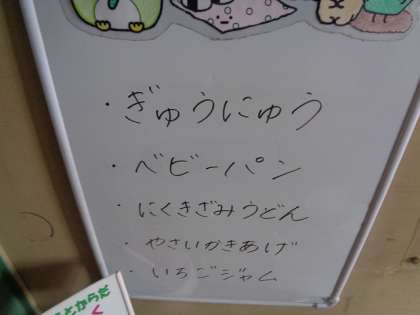 ・ぎゅうにゅう
・ベビーパン
・にくきざみうどん
・やさいかきあげ
・いちごジャム
とからだ
く